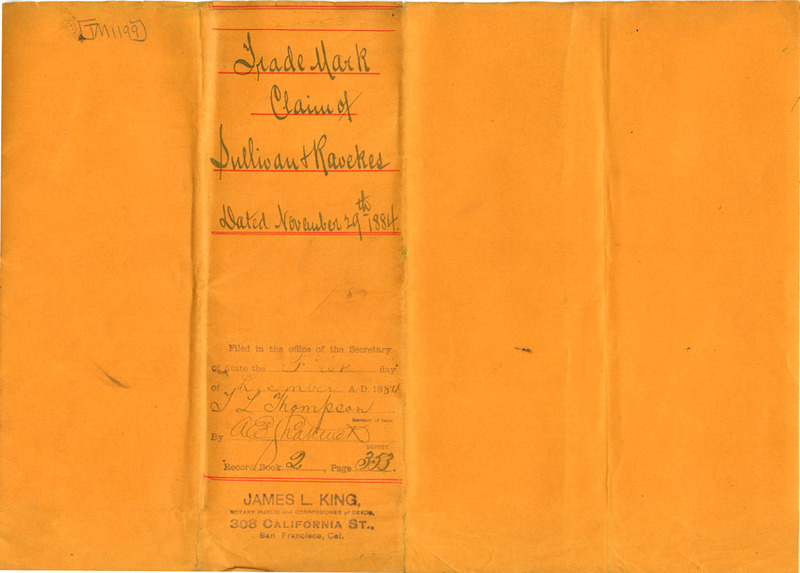 [TM1199]
Trade Mark
Claim of
Sullivan & Ravekes
Dated November 29th 1884.
Filed in the office of the Secretary
of State the First day
of December A.D. 1884
T L Thompson
Secretary of State
By
DEPUTY
Record Book 2, Page 353.
JAMES L. KING,
NOTARY PUBLIC and COMMISSIONER of DEEDS,
308 CALIFORNIA ST.,
San Francisco, Cal.